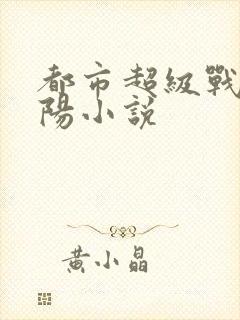 都市超級戰
陽小說
黃小晶